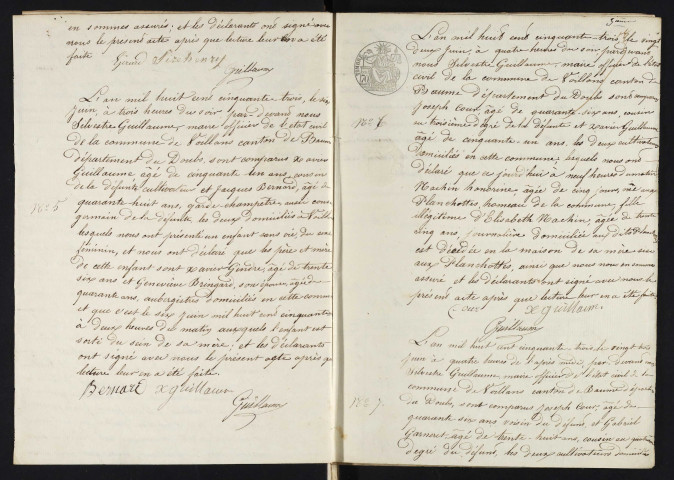 en sommes assurés; et les déclarants ont signé avec
nous le présent acte après que lecture leur en a été
faite
Guillaum
L'an mil huit cent cinquante trois, le six
juin, à trois heures du soir par-devant nous
Silvestre Guillaume, maire officier de l'état civil
de la commune de Voillans canton de Baume
département du Doubs, sont comparus Xavier
Guillaume, âgé de cinquante un ans, cousin
de la défunte, cultivateur et Jacques Bernard, âgé de
quarante huit ans, garde champêtre, aussi cousin
N° 5
germain de la défunte, les deux domiciliés à Voillans
lesquels nous ont présenté un enfant sans vie, du sexe
féminin, et nous ont déclaré que les père et mère
de cette enfant sont Xavier, âgé de trente
six ans et Geneviève, son épouse, âgée de
quarante ans, aubergistes domiciliés en cette commune
et que c'est le six juin mil huit cent cinquante
à deux heures du matin auxquels l'enfant est
sorti du sein de sa mère; et les déclarants
ont signé avec nous le présent acte après que
lecture leur en a été faite.
Bernard x guillaum
Guillaum
L'an mil huit cent cinquante trois le vingt
deux juin, à quatre heures du soir pardevant
nous Silvestre Guillaume, maire officier de l'état
civil de la commune de Voillans canton de
Baume département du Doubs sont comparus
N° 6
Joseph Cour, âgé de quarante six ans, cousin
au troisième degré de la défunte et Xavier Guillaume
âgé de cinquante un ans, les deux cultivateurs
domiciliés en cette commune, lesquels nous ont
déclaré que ce jourd'hui à neuf heures du matin
Machin honorine, âgée de cinq jours, née aux
Planchottes, hameau de la commune, fille
illégitime d'Elisabeth Machin, âgée de trente
cinq ans, journalière domiciliée au dit Planchottes
est décédée en la maison de sa mère sise
aux Planchottes, ainsi que nous nous en sommes
assuré et les déclarants ont signé avec nous le
présent acte après que lecture leur en a été faite.
Cour x guillaum.
Guillaum
L'an mil huit cent cinquante trois le vingt
juin à quatre heures de l'après midi, par devant nous
Silvestre Guillaume, maire officier de l'état civil de la
commune de Voillans canton de Baume département
N° 7.
du Doubs, sont comparus Joseph Cour, âgé de
quarante six ans voisin du défunt et Gabriel
Garneret âgé de trente huit ans, cousin au quatrième
degré du défunt, les deux cultivateurs domiciliés